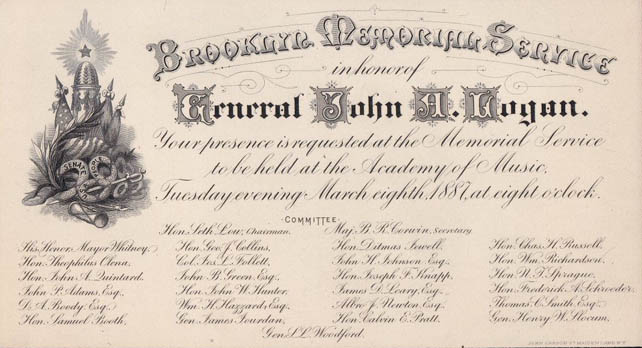 Brooklyn Memorial Service
in honor of
General John A. Logan.
Your presence is requested at the Memorial Service
to be held at the Academy of Music,
Tuesday evening March eighth, 1887, at eight o'clock.
COMMITTEE
Hon. Seth Low, Chairman. Maj. B. R. Corwin, Secretary
His Honor, Mayor Whitney,
Hon. Theophilus Olena,
Hon. John A. Quintard,
John P. Adams, Esq.
D. A. Boody, Esq.
Hon. Samuel Booth,
Hon. Geo. J. Collins,
Col. Jos. L. Follett,
John B. Green, Esq.
Hon. John W. Hunter,
Wm. H. Hazzard, Esq.
Gen. James Jourdan,
Hon. Ditmas Jewell,
John H. Johnson, Esq.
Hon. Joseph F. Knapp,
James D. Leary, Esq.
J. Newton, Esq.
Hon. Calvin E. Pratt,
Hon. Chas. H. Russell,
Hon. Wm. Richardson,
Hon. N. T. Sprague,
Hon. Frederick A. Schroeder,
Thomas C. Smith, Esq.
Gen. Henry W. Slocum,
Gen. S. L. Woodford.
SENATE